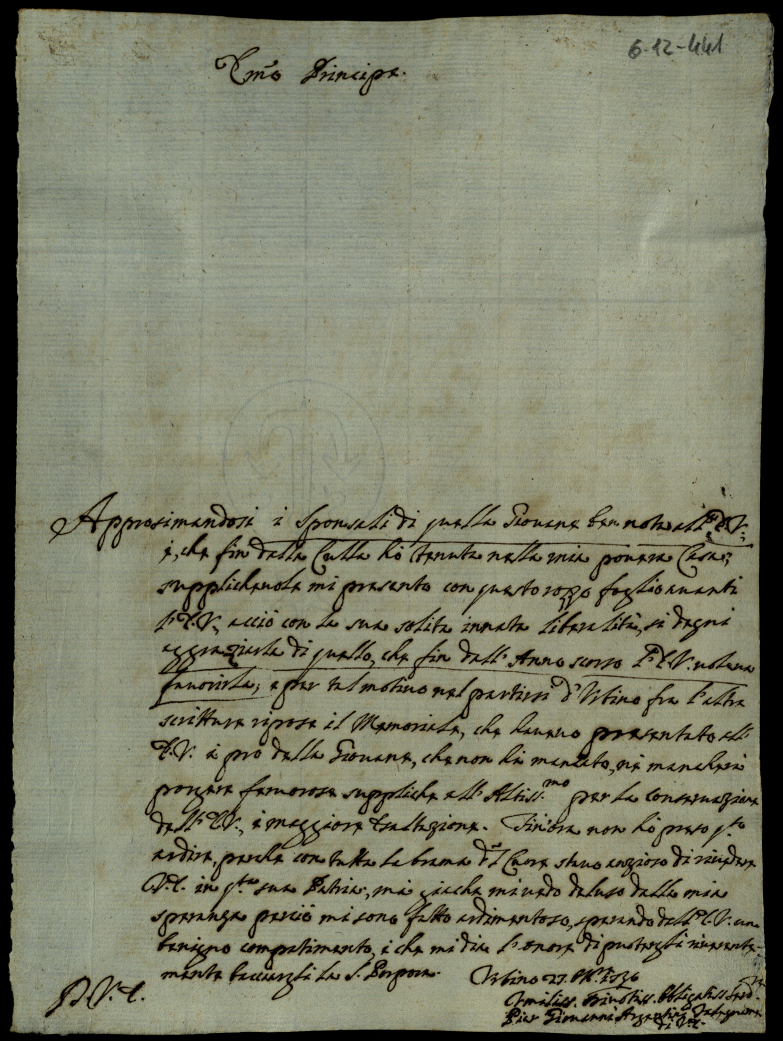 6-12-441
Emo Principe.
Approsimandosi i Sponsali di quella Giovane ben nota all' E.V.,
e, che fin dalla Culla hò tenuta nella mia povera Casa;
supplichevole mi presento con questo rozzo foglio avanti
l'E.V., acciò con la sua solita innata liberalità, si degni
aggraziarla di quello, che fin dall' Anno scorso l'E.V. voleva
favorirla; e per tal motivo nel partirsi d'Urbino fra l'altre
scritture ripose il Memoriale, che havevo presentato all'
E.V. à pro della Giovane, che non hà mancato, nè mancherà
porgere fervorose suppliche all' Altiss.mo per la conservazione
dell' E.V., e maggiore Esaltazione. Fin'ora non hò preso q.to
ardire, perche con tutta la brama del Cuore stavo anzioso di rivedere
V.E. in q.ta sua Patria, mà giache mi vedo deluso dalla mia
speranza perciò mi sono fatto ardimentoso, sperando dall' E.V. un
benigno compatimento, e che mi dia l'onore di prostrarglisi riverente-
mente bacciargli la S. Porpora.
Urbino 27.
D. V. E.
Umiliss. Divotiss. Obligatiss.
Pier Giovanni Argentini
di V.E.